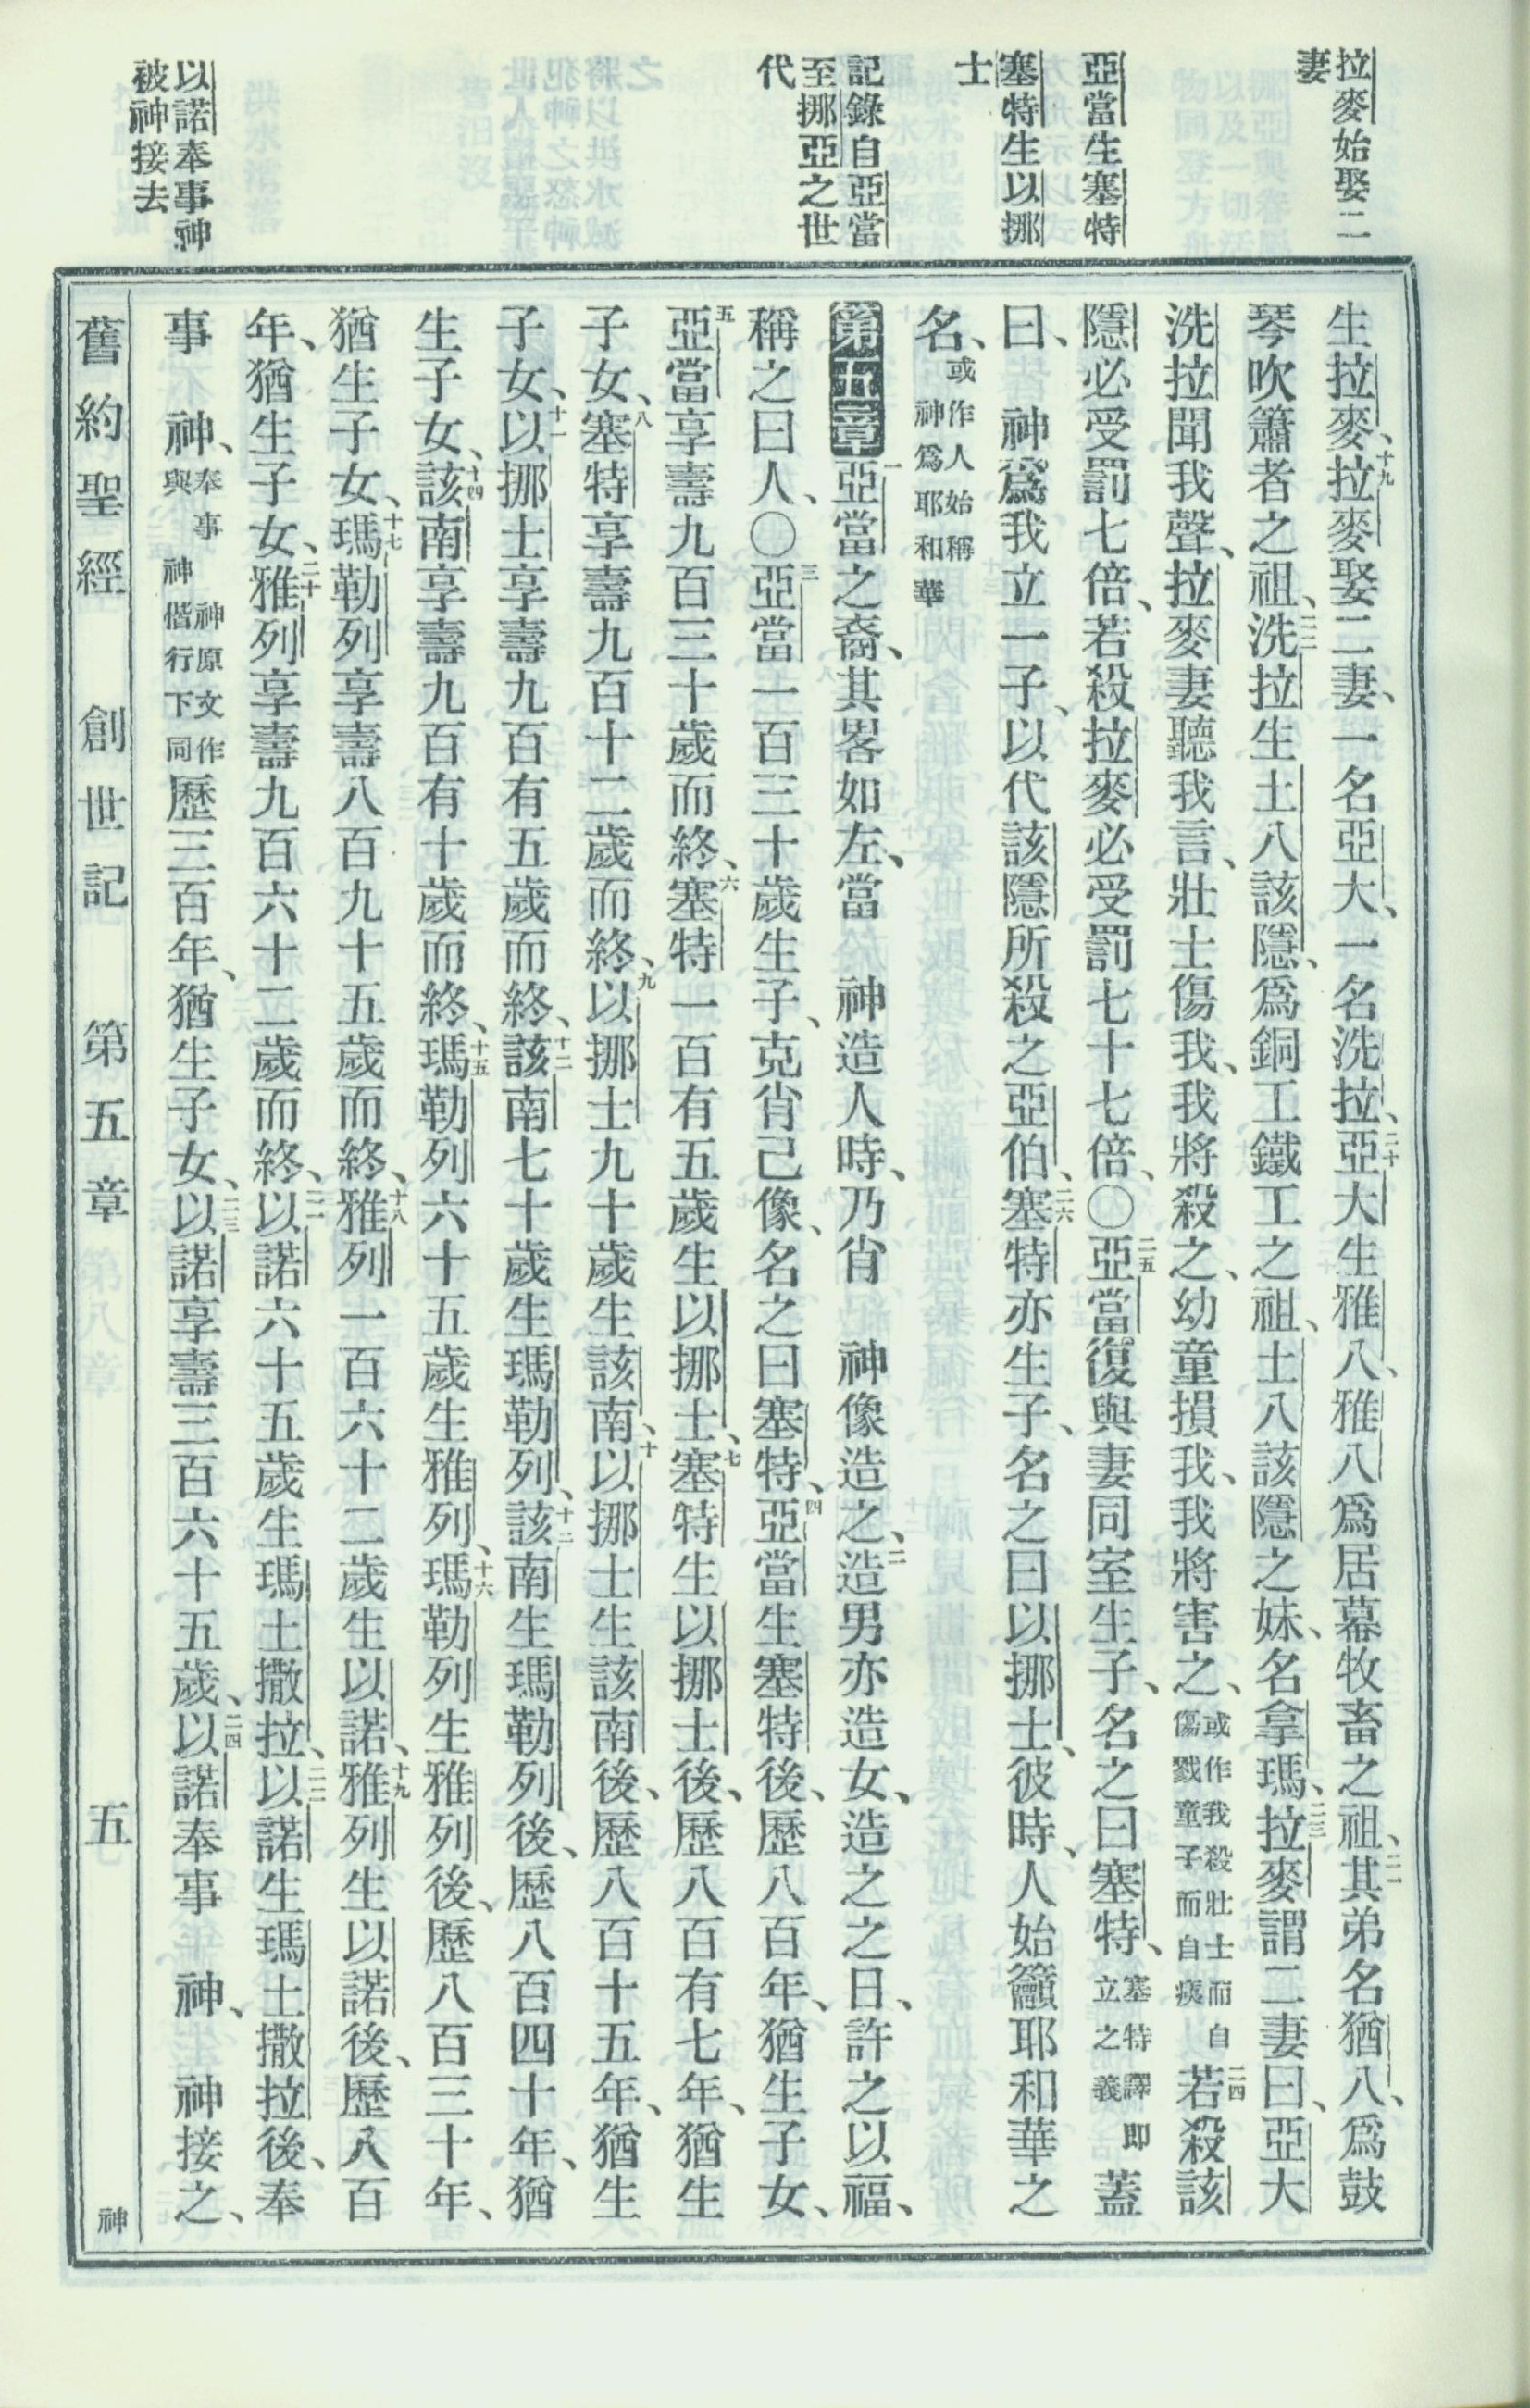 拉麥始娶二
妻
亞當生塞特
塞特生以挪
士
記錄自亞當
至挪亞之世
代
以諾奉事神
被神接去
生拉麥、十九拉麥娶二妻、一名亞大、一名洗拉、二十亞大生雅八、雅八爲居幕牧畜之祖、二一其弟名猶八、爲鼓
琴吹簫者之祖、二二洗拉生土八該隱、爲銅工鐵工之祖、土八該隱之妹、名拿瑪、二三拉麥謂二妻曰、亞大
洗拉聞我聲、拉麥妻聽我言、壯士傷我、我將殺之、幼童損我、我將害之、或作我殺壯士而自傷戮童子而自痍二四若殺該
隱必受罰七倍、若殺拉麥必受罰七十七倍、〇二五亞當復與妻同室生子、名之曰塞特、塞特譯即立之義蓋
曰、 神爲我立一子、以代該隱所殺之亞伯、二六塞特亦生子、名之曰以挪士、彼時、人始籲耶和華之
名、或作人始稱神爲耶和華
第五章一亞當之裔、其畧如左、當 神造人時、乃肖 神像造之、二造男亦造女、造之之日、許之以福、
稱之曰人、〇三亞當一百三十歲生子、克肖己像、名之曰塞特、四亞當生塞特後、歷八百年、猶生子女、
五亞當享壽九百三十歲而終、六塞特一百有五歲生以挪士、七塞特生以挪士後、歷八百有七年、猶生
子女、八塞特享壽九百十二歲而終、九以挪士九十歲生該南、十以挪士生該南後、歷八百十五年、猶生
子女、十一以挪士享壽九百有五歲而終、十二該南七十歲生瑪勒列、十三該南生瑪勒列後、歷八百四十年、猶
生子女、十四該南享壽九百有十歲而終、十五瑪勒列六十五歲生雅列、十六瑪勒列生雅列後、歷八百三十年、
猶生子女、十七瑪勒列享壽八百九十五歲而終、十八雅列一百六十二歲生以諾、十九雅列生以諾後、歷八百
年、猶生子女、二十雅列享壽九百六十二歲而終、二一以諾六十五歲生瑪土撒拉、二二以諾生瑪土撒拉後、奉
事 神、奉事 神原文作與 神偕行下同歷三百年、猶生子女、二三以諾享壽三百六十五歲、二四以諾奉事 神、 神接之、
舊約聖經 創世記 第五章 五 神